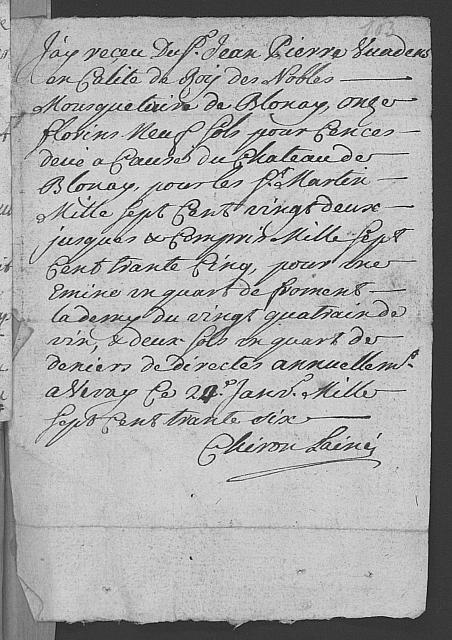 103
J'ay receu Du Sr. Jean Pierre Vuadens
en Calité de Roy des Nobles
Mousquetaire de Blonay, onze
florins Neuf sols pour Cences
deüe a Cause du Chateau de
Blonay, pour les St. Martin
Mille sept Cent vingt deux
jusques & Compris Mille sept
Cent trante Cinq, pour une
Emine un quart de froment
la demy du vingt quatrain de
vin, & deux sols un quart de
deniers de directes annuellemt.
a Vevay Ce 24e. Janvr. Mille
sept Cent trante six
Cheron Lainé